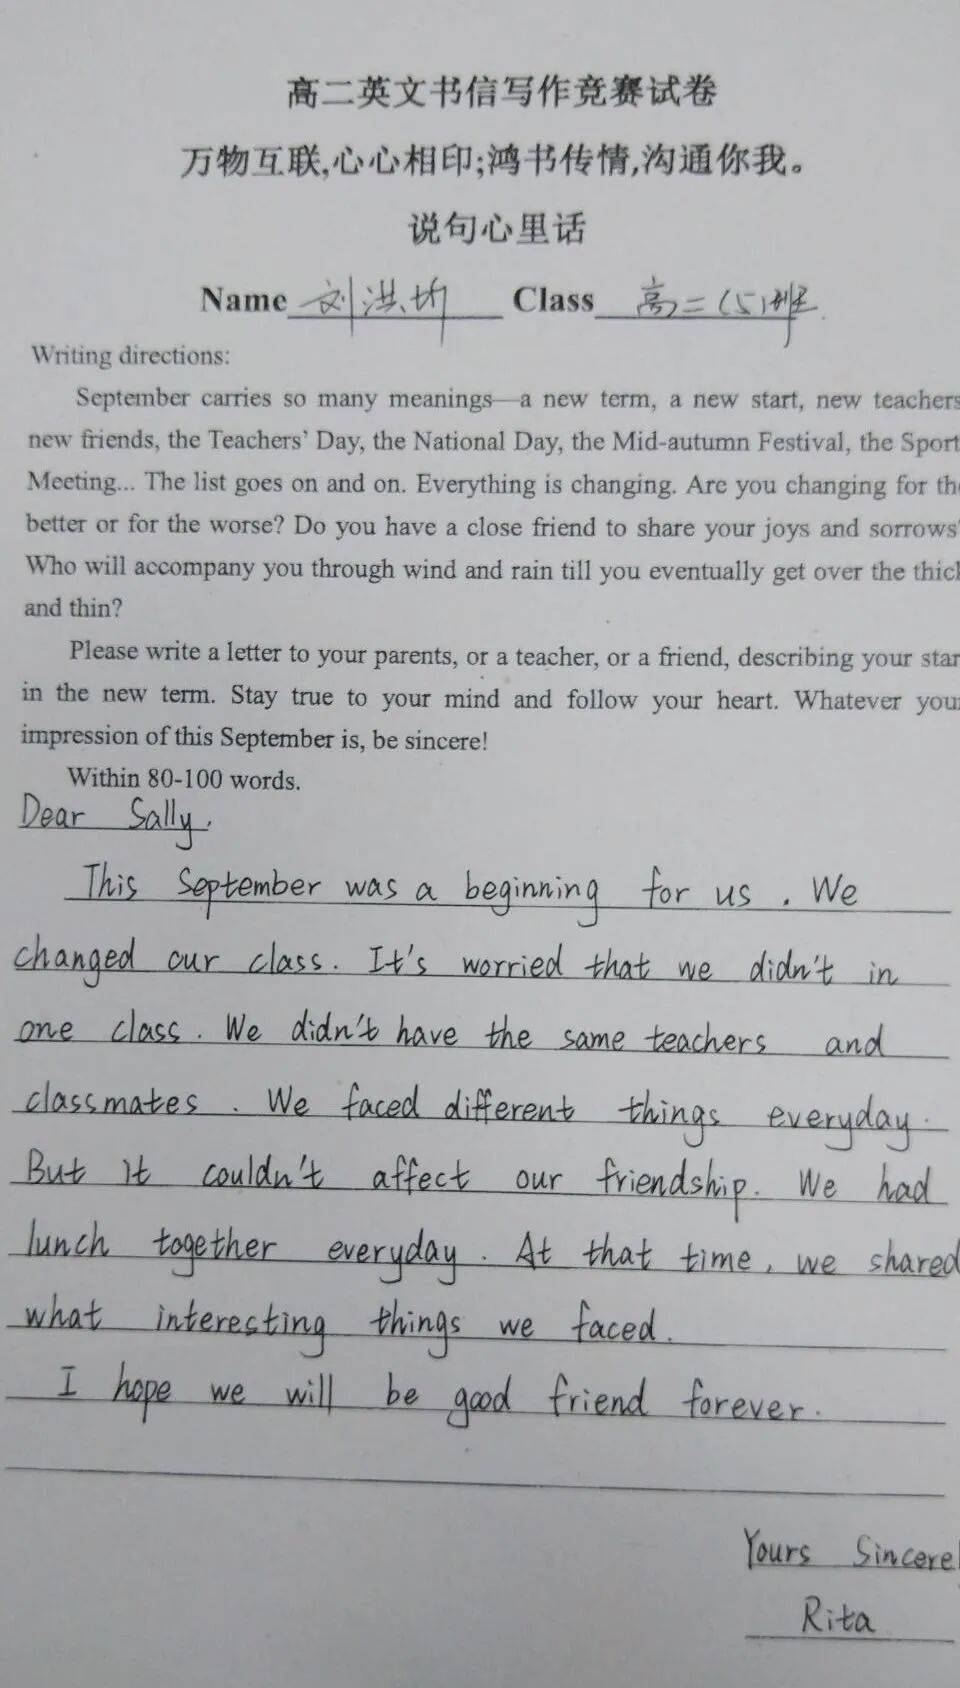 高二英文书信写作竞赛试卷
万物互联,心心相印;鸿书传情,沟通你我。
说句心里话
Name 刘洪圻 Class 高二(5)班
Writing directions:
September carries so many meanings—a new term, a new start, new teachers
new friends, the Teachers' Day, the National Day, the Mid-autumn Festival, the Sport
Meeting... The list goes on and on. Everything is changing. Are you changing for th
better or for the worse? Do you have a close friend to share your joys and sorrows
Who will accompany you through wind and rain till you eventually get over the thick
and thin?
Please write a letter to your parents, or a teacher, or a friend, describing your star
in the new term. Stay true to your mind and follow your heart. Whatever your
impression of this September is, be sincere!
Within 80-100 words.
Dear Sally,
This September was a beginning for us. We
changed our class. It's worried that we didn't in
one class. We didn't have the same teachers and
classmates. We faced different things everyday.
But it couldn't affect our friendship. We had
lunch together everyday. At that time, we shared
what interesting things we faced.
I hope we will be good friend forever.
Yours Sincere
Rita